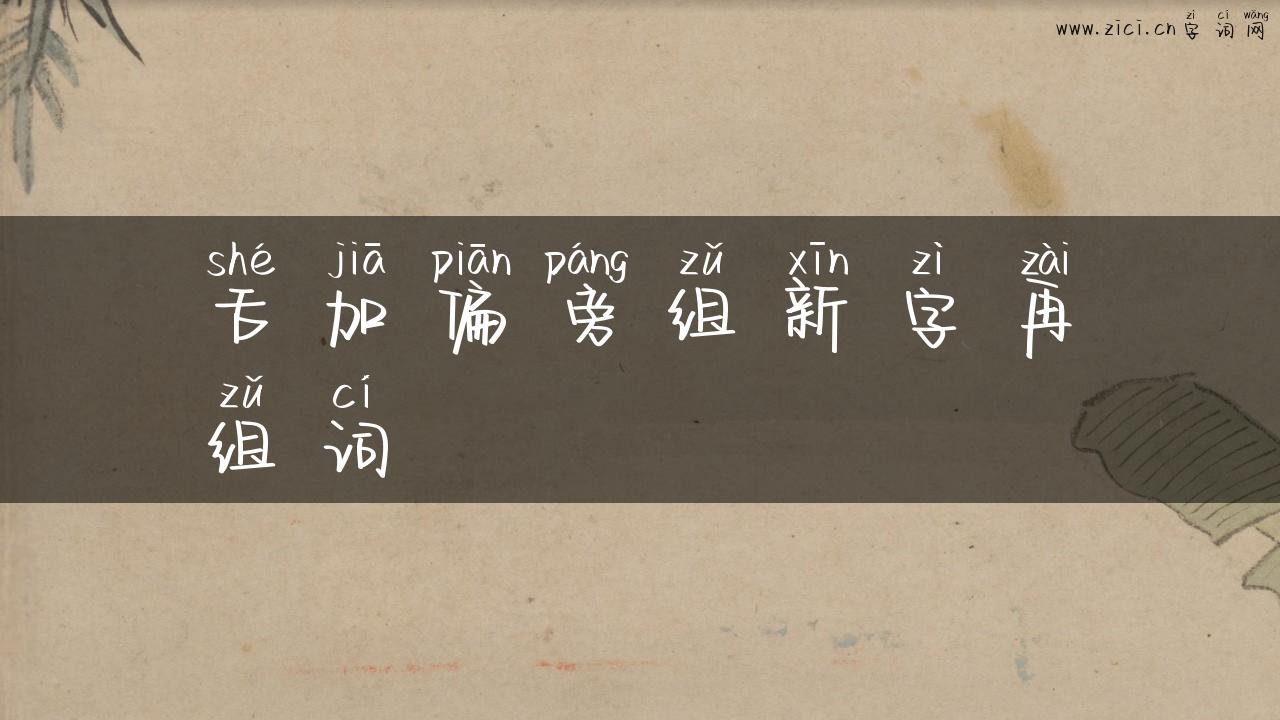 zì cí wǎng
www.zici.cn 字 词 网
shé jiā piān páng zǔ xīn zì zài
舌 加 偏 旁 组 新 字 再
zǔ cí
组 词